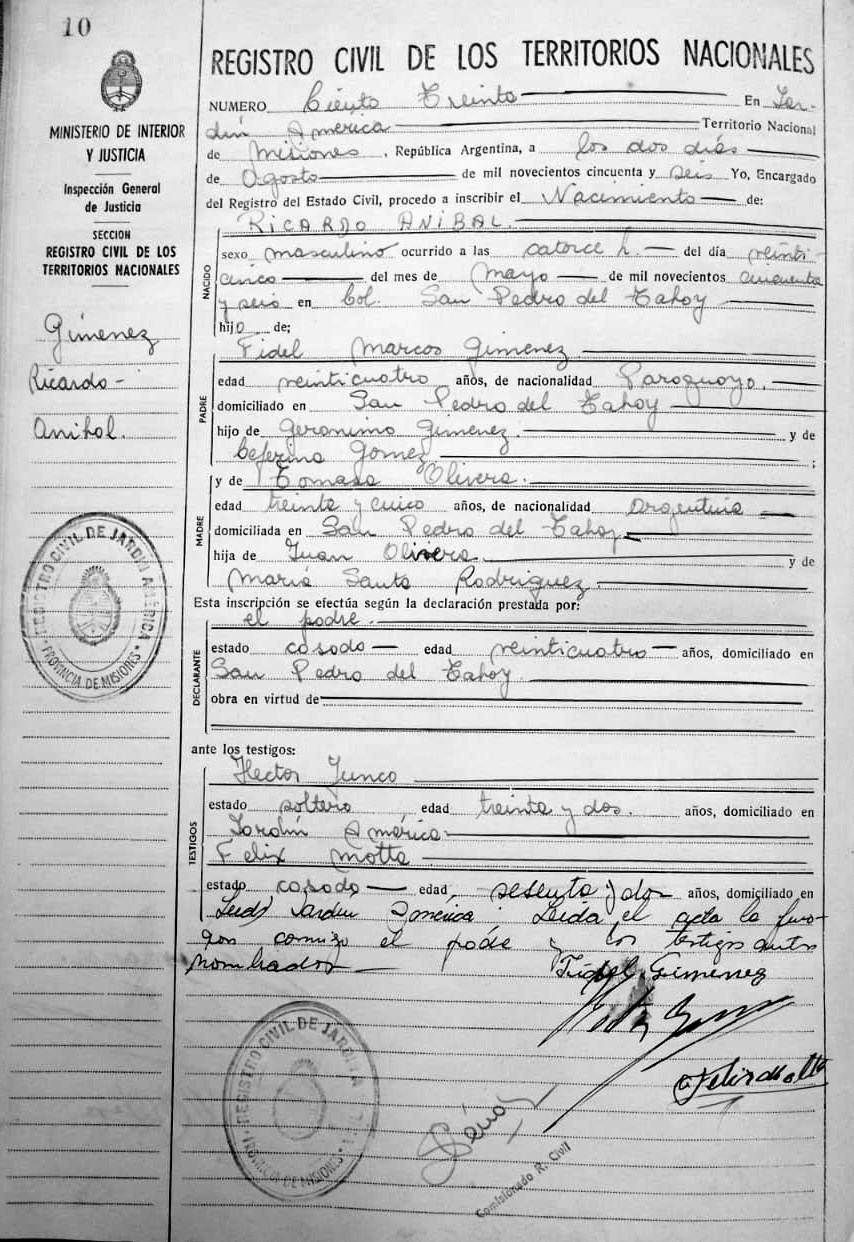 10
MINISTERIO DE INTERIOR
Y JUSTICIA
Inspección General
de Justicia
SECCION
REGISTRO CIVIL DE LOS
TERRITORIOS NACIONALES
Gimenez
Ricardo -
Anibal.
REGISTRO CIVIL DE JARDIN AMERICA
PROVINCIA DE MISIONES
REGISTRO CIVIL DE LOS TERRITORIOS NACIONALES
NUMERO Ciento Treinta En Jar-
dín América Territorio Nacional
de Misiones, República Argentina, a los dos días
de Agosto de mil novecientos cincuenta y seis Yo, Encargado
del Registro del Estado Civil, procedo a inscribir el Nacimiento de:
RICARDO ANIBAL.
NACIDO
sexo masculino ocurrido a las catorce h. del día veinti-
cinco del mes de Mayo de mil novecientos cincuenta
y seis en Col. San Pedro del Tahoy
hijo de;
PADRE
Fidel Marcos Gimenez
edad veinticuatro años, de nacionalidad Paraguayo.
domiciliado en San Pedro del Tahoy
hijo de Geronimo Gimenez. y de
Ceferina Gomez ;
MADRE
y de Tomasa Olivera.
edad treinta y cinco años, de nacionalidad argentina
domiciliada en San Pedro del Tahoy
hija de Juan Olivera y de
María Santa Rodriguez.
Esta inscripción se efectúa según la declaración prestada por:
DECLARANTE
el padre.
estado casado edad veinticuatro años, domiciliado en
San Pedro del Tahoy
obra en virtud de
ante los testigos:
TESTIGOS
Hector Junco
estado soltero edad treinta y dos. años, domiciliado en
Jardín América
Felix Motta
estado casado edad sesenta y dos años, domiciliado en
Jardín América. Leida el acta la firma-
ron conmigo el padre y los testigos antes
nombrados
Fidel Gimenez
Felix Motta
REGISTRO CIVIL DE JARDIN
PROVINCIA DE MISIONES
Comisionado R. Civil